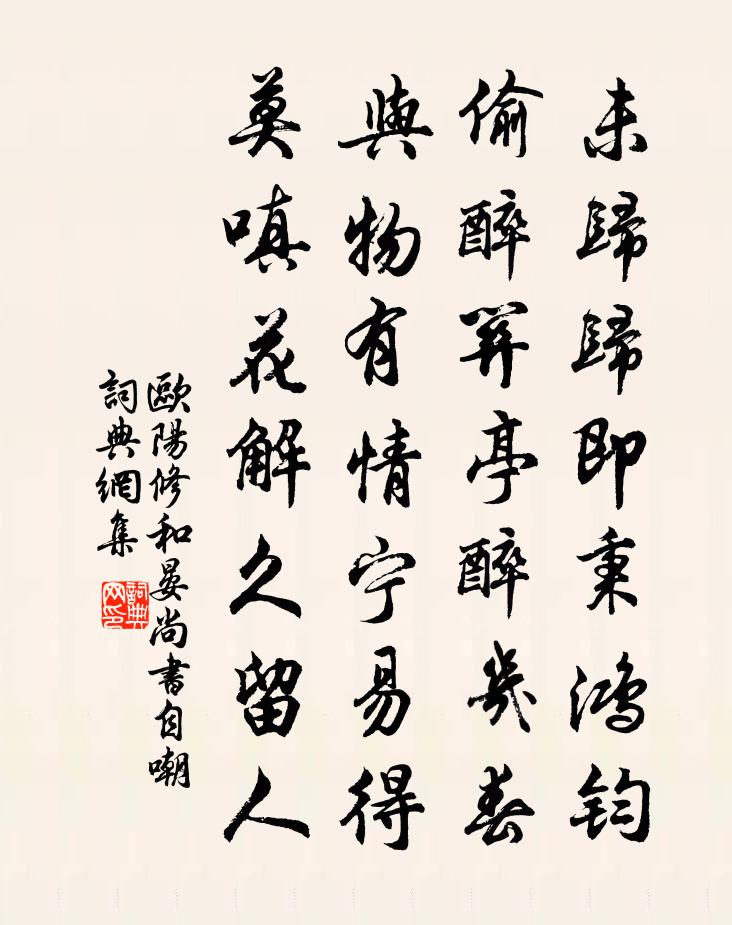 未歸歸即秉鴻鈞
偷醉關亭醉幾春
與物有情宁易得
莫嗔花解久留人
歐陽修和晏尚書自嘲
詞典網集
詞典网印